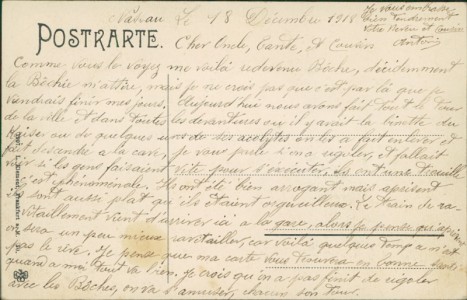 Nassau Le 18 Décembre 1918
Je vous embrasse
bien tendrement
votre neveu et cousin
Antoine
POSTKARTE. Cher Oncle, Tante, et Cousin
Comme vous le voyez me voilà redevenu Boche, décidemment
la Bochie m'attire, mais je ne crois pas que c'est par là que je
voudrais finir mes jours. Aujourdhui nous avons fait tout le tour
de la ville et dans toutes les devantures où il y avait la binette du
Kaiser ou de quelques uns de ses acolytes on les a fait enlever et
fait descendre à la cave, je vous prie si on a rigolé, et fallait
voir si les gens faisaient vite pour s'exécuter, ils ont une trouille
c'est phénoménale. Ils ont été bien arrogant mais à présent
ils sont aussi plat qu'ils étaient orgueilleux. Le train de ra-
vitaillement vient d'arriver ici à la gare, alors je pense que
on sera un peu mieux ravitailler, car voilà quelques temps ce n'est
pas le rêve. Je pense que ma carte vous trouvera en bonne santé
quand à moi tout va bien. Je crois qu'on a pas finit de rigoler
avec les Boches, on va s'amuser, chacun son tour.